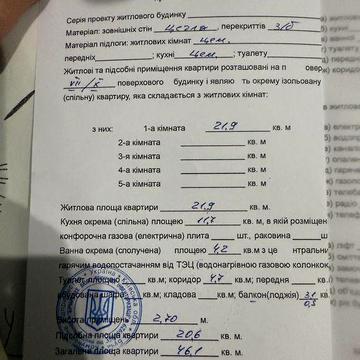 Серія проекту житлового будинку
Матеріал: зовнішніх стін цегла, перекриттів з/б
Матеріал підлоги: житлових кімнат цем.
передніх ; кухні цем. ; туалету
Житлові та підсобні приміщення квартири розташовані на п повер
VII/X поверхового будинку і являю ть окрему ізольовану
(спільну) квартиру, яка складається з житлових кімнат:
з них: 1-а кімната 21,9 кв. м
2-а кімната кв. м
3-я кімната кв. м
4-а кімната кв. м
5-а кімната кв. м
Житлова площа квартири 21,9 кв. м
Кухня окрема (спільна) площею 11,7 кв. м, в якій розміщен
конфорочна газова (електрична) плита шт., раковина ш
Ванна окрема (сполучена) площею 4,2 кв.м з це нтральн
гарячим водопостачанням від ТЕЦ (водонагрівною газовою колонкою
Туалет площею кв.м; коридор 4,7 кв.м; передня кв.
вбудована шафа кв.м; кладова кв.м; балкон(лоджія) 3,1
0,3 кв.
Висота приміщень 2,70 м.
Підсобна площа квартири 20,6 кв. м.
Загальна площа квартири 46,1 кв. м.